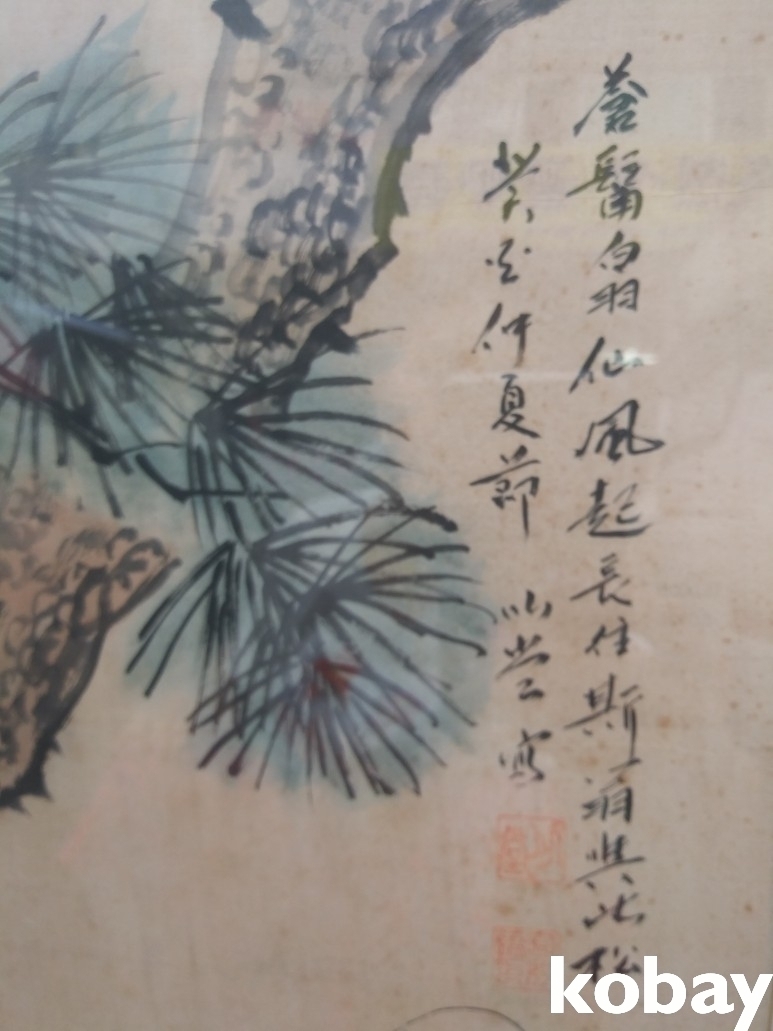 蒼髯白羽仙風起長住斯與此松
癸仲夏節 堂寫
kobay